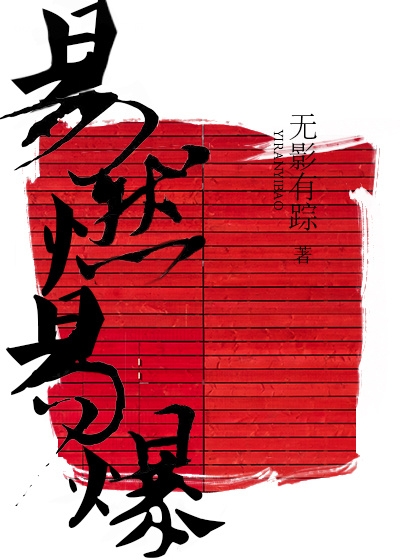 易燃易爆
无影有踪 著
YIRANYIBAO